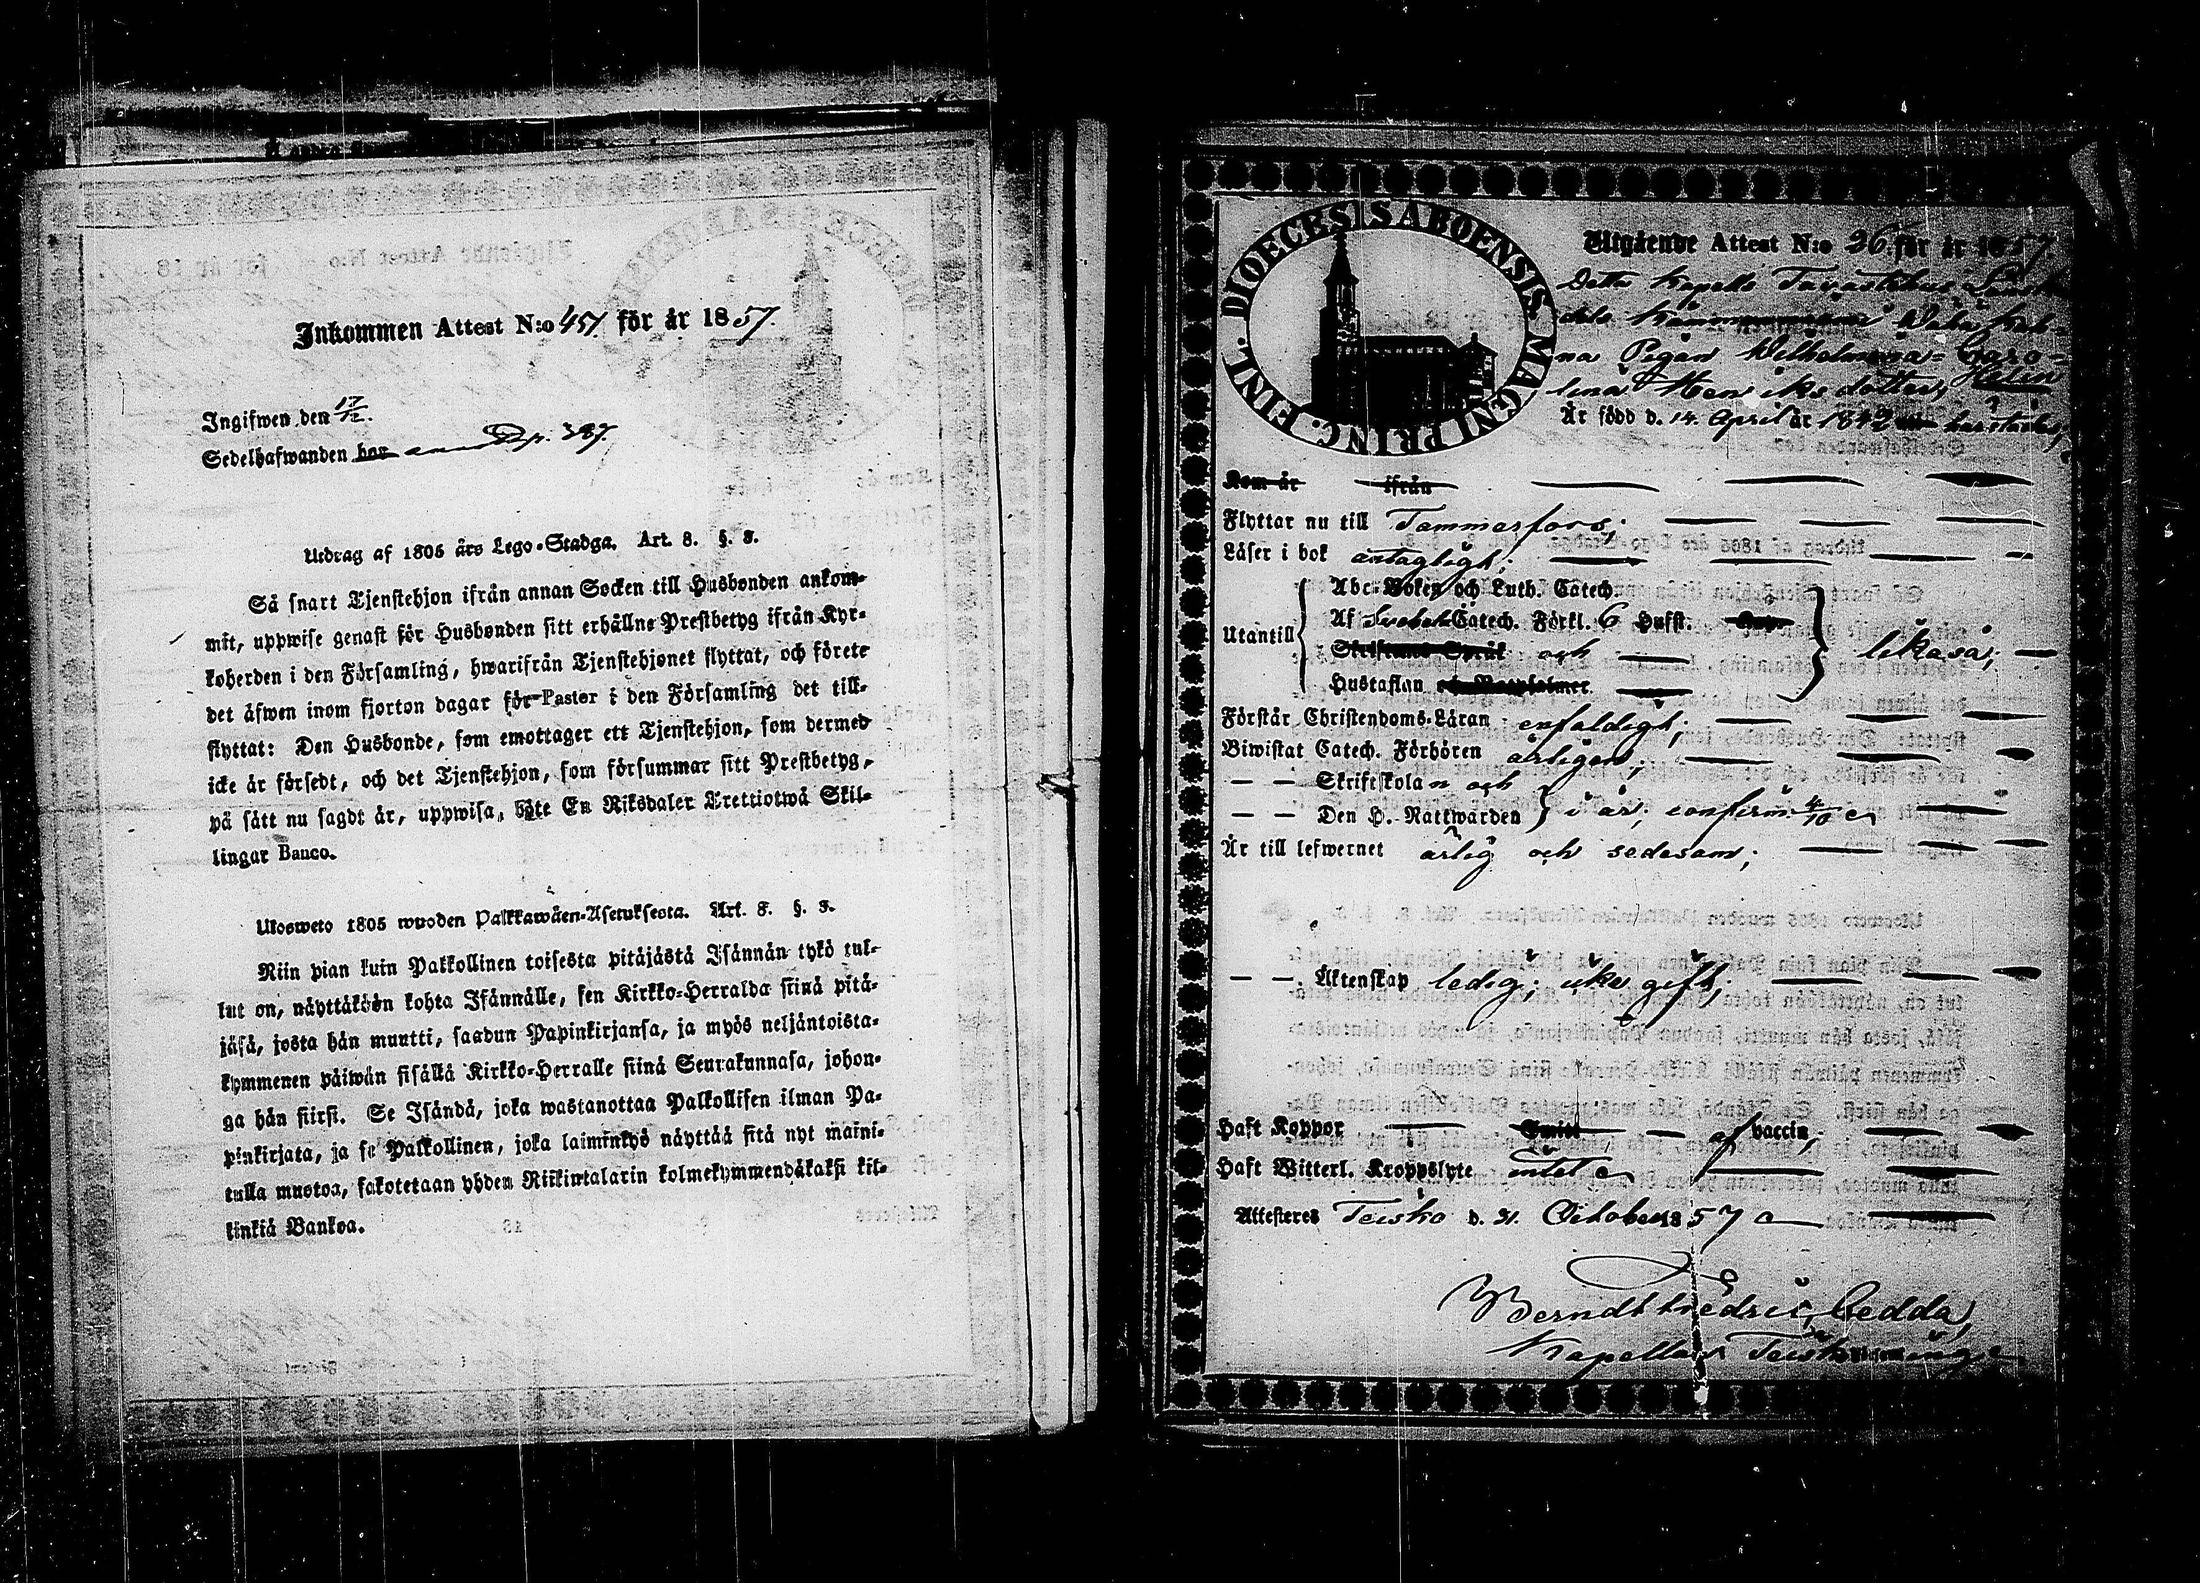 Inkommen Attest N:o 457. för år 1857.
Ingifwen den 17/12.
Sedelhafwanden bor p. 387.
Utdrag af 1805 års Lego-Stadga. Art. 8. §. 3.
Så snart Tjenstehjon ifrån annan Socken till Husbonden ankom-
mit, uppwise genast för Husbonden sitt erhållne Prestbetyg ifrån Kyr-
koherden i den Församling, hwarifrån Tjenstehjonet flyttat, och förete
det äfwen inom fjorton dagar för Pastor i den Församling det till-
flyttat: Den Husbonde, som emottager ett Tjenstehjon, som dermed
icke är försedt, och det Tjenstehjon, som försummar sitt Prestbetyg,
på sätt nu sagdt är, uppwisa, böte En Riksdaler Trettiotwå Skil-
lingar Banco.
Ulosweto 1805 wuoden Palkkawäen-Asetuksesta. Art. 8. §. 3.
Niin pian kuin Palkollinen toisesta pitäjästä Isännän tykö tul-
lut on, näyttäköön kohta Isännälle, sen Kirkko-Herralda siinä pitä-
jäsä, josta hän muutti, saadun Papinkirjansa, ja myös neljäntoista-
kymmenen päiwän sisällä Kirkko-Herralle siinä Seurakunnasa, johon-
ga hän siirsi. Se Isändä, joka wastanottaa Palkollisen ilman Pa-
pinkirjata, ja se Palkollinen, joka laiminlyö näyttää sitä nyt maini-
tulla muotoa, sakotetaan yhden Riikintalarin kolmekymmendäkaksi kil-
linkiä Bankoa.
DIOECESIS ABOENSIS. MAGNI PRINC. FINL.
Utgående Attest N:o 26 för år 1857.
Detta Kapells Tavastehus Läns
dels
na Pigan Wilhelmina Caro-
lina Henriksdotter, Helen
Är född d. 14. April år 1842 härstädes,
Kom år ifrån
Flyttar nu till Tammerfors;
Läser i bok antagligt;
Utantill Abc-Boken och Luth. Catech.
Af Svebel. Catech. Förkl. 6 Hufst.
Skriftenes Språk och
Hustaflan
likaså;
Förstår Christendoms-Läran enfaldigt;
Biwistat Catech. Förhören årligen;
— — Skriftskolan och
— — Den H. Nattwarden i år; confirm. 4/10
Är till lefwernet ärlig och sedesam;
— — Äktenskap ledig; icke gift;
Haft Koppor Smitt af vaccin;
Haft Witterl. Kroppslyte intet
Attesteres Teisko d. 31. October 1857
Berndt Fredric Cedda,
Kapellan i Teisko